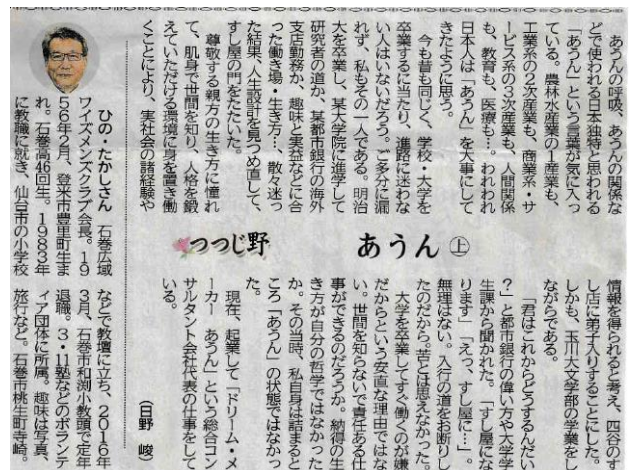 あうんの呼吸、あうんの関係な
どで使われる日本独特と思われる
「あうん」という言葉が気に入っ
ている。農林水産業の1次産業も、
工業系の2次産業も、商業系・サ
ービス系の3次産業も、人間関係
も、教育も、医療も…。われわれ
日本人は「あうん」を大事にして
きたように思う。
今も昔も同じく、学校・大学を
卒業するに当たり、進路に迷わな
い人はいないだろう。ご多分に漏
れず、私もその一人である。明治
大を卒業し、某大学院に進学して
研究者の道か、某都市銀行の海外
支店勤務か、趣味と実益などに合
った働き場・生き方…、散々迷っ
た結果、人生設計を見つめ直して、
すし屋の門をたたいた。
尊敬する親方の生き方に憧れ
て、肌身で世間を知り、人格を鍛
えていただける環境に身を置き働
くことにより、実社会の諸経験や
つつじ野
あうん㊤
情報を得られると考え、四谷のす
し店に弟子入りすることにした。
しかも、玉川大文学部の学業をし
ながらである。
「君はこれからどうするんだい
?」と都市銀行の偉い方や大学学
生課から聞かれた。「すし屋にな
ります」「えっ、すし屋に…」。
無理はない。入行の道をお断りし
たのだから。苦とは思えなかった。
大学を卒業してすぐ働くのが嫌
だからという安直な理由ではな
い。世間を知らないで責任ある仕
事ができるのだろうか。納得の生
き方が自分の哲学ではなかった
か。その当時、私自身は詰まると
ころ「あうん」の状態ではなかっ
た。
現在、起業して「ドリーム・メ
ーカー あうん」という総合コン
サルタント会社代表の仕事をして
いる。
(日野 峻)
ひの・たかしさん 石巻広域
ワイズメンズクラブ会長。19
56年2月、登米市豊里町生ま
れ。石巻高46回生。1983年
に教職に就き、仙台市の小学校
などで教壇に立ち、2016年
3月、石巻市和渕小教頭で定年
退職。3・11塾などのボランテ
ィア団体に所属。趣味は写真、
旅行など。石巻市桃生町寺崎。